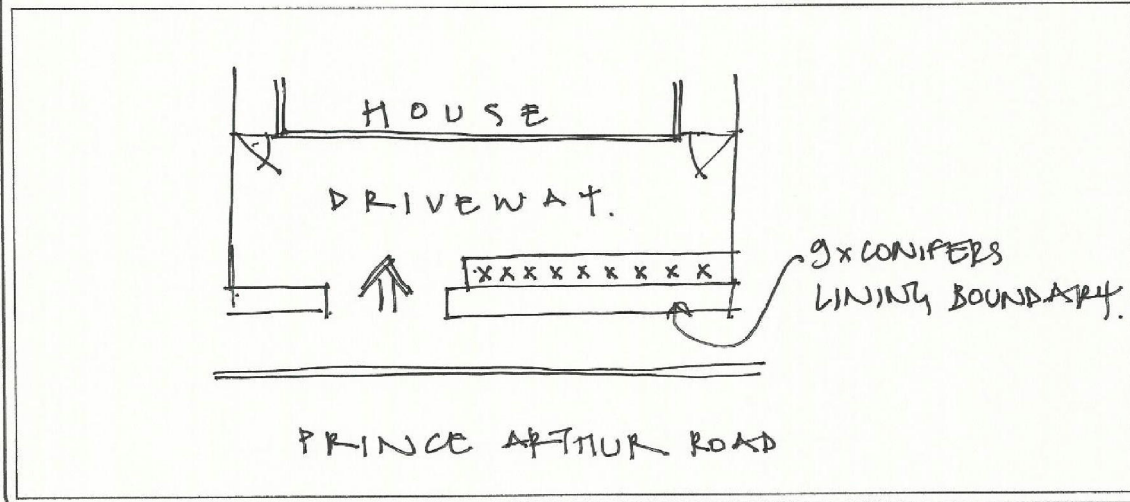 HOUSE
DRIVEWAY.
xxxxxxxxx
9x CONIFERS
LINING BOUNDARY.
PRINCE ARTHUR ROAD